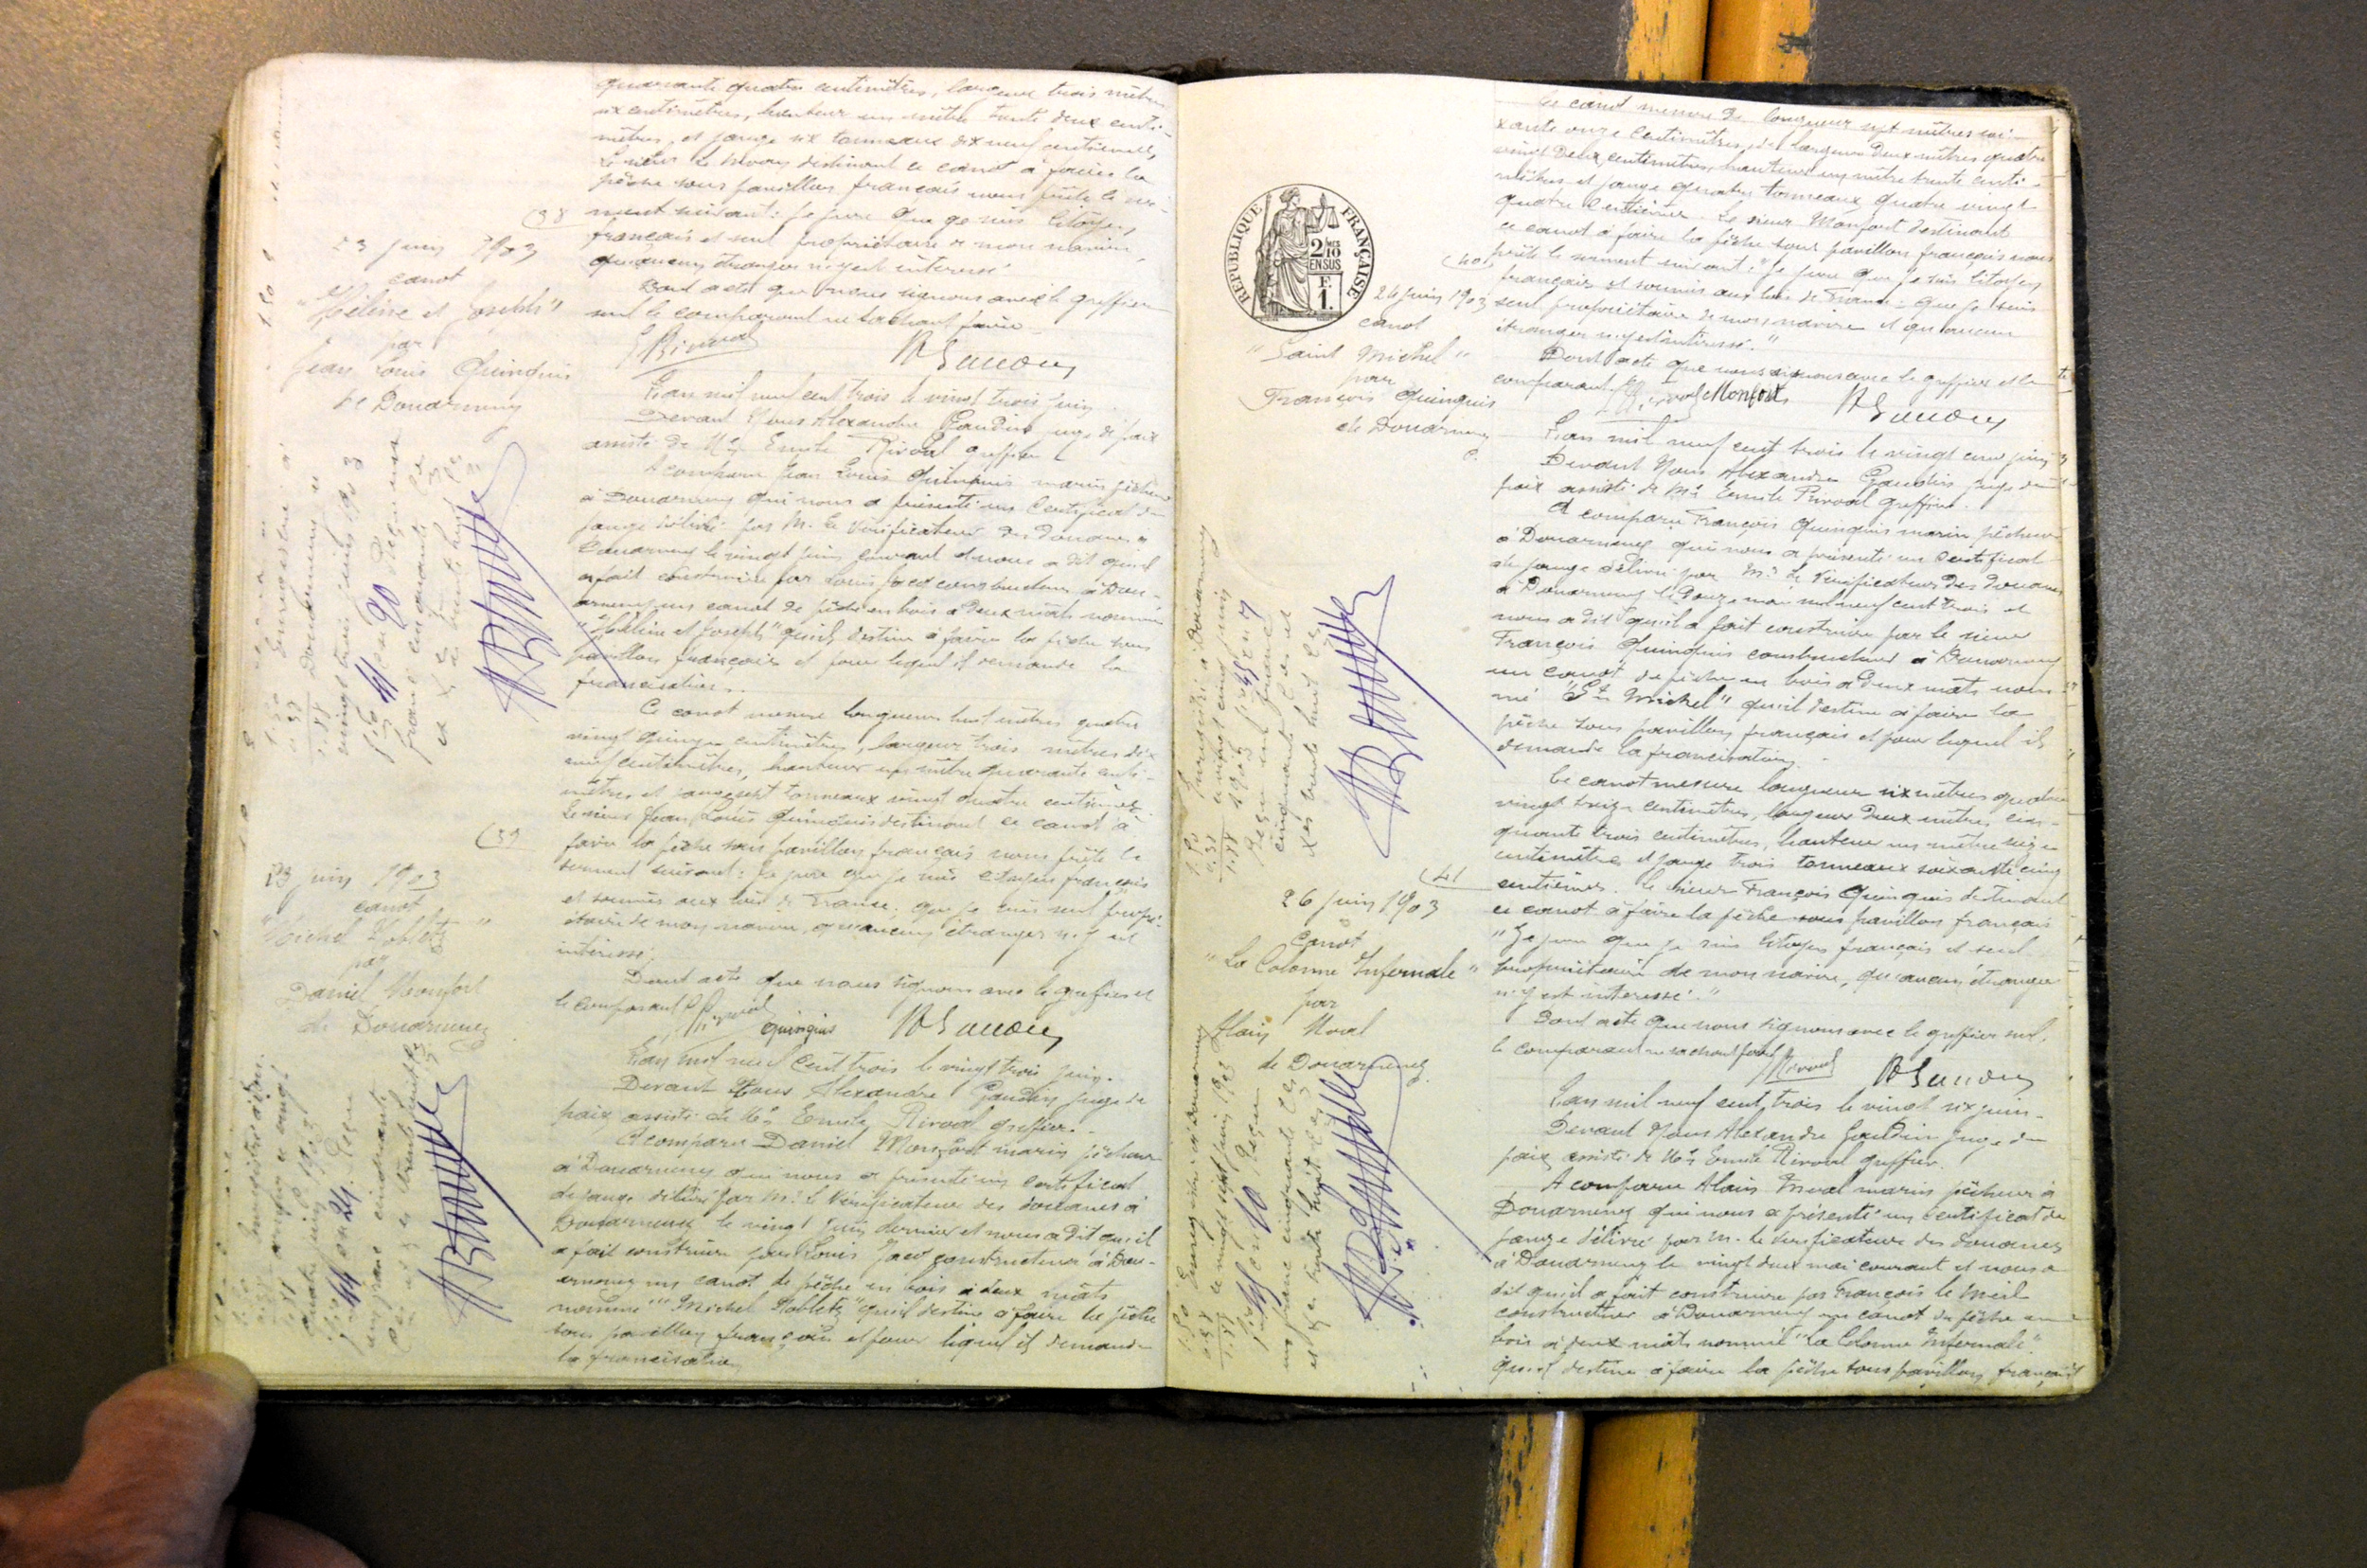 quarante quatre centimètres, largeur trois mètres
six centimètres, hauteur un mètre trente deux centi-
mètres, et jauge six tonneaux dix neuf centièmes,
Le sieur destinant ce canot à faire la
pêche sous pavillon français nous prête le ser-
ment suivant: Je jure que je suis citoyen
français et seul propriétaire de mon navire,
qu'aucun étranger n'y est intéressé.
Dont acte que nous signons avec le greffier
seul le comparant ne sachant faire
(38
23 juin 1903
canot
"Hélène et Joseph"
par
Jean Louis Quinquis
de Douarnenez
L'an mil neuf cent trois le vingt trois juin.
Devant Nous Alexandre Gaudin juge de paix
assisté de Me Emile Rivoal greffier
A comparu Jean Louis Quinquis marin pêcheur
à Douarnenez qui nous a présenté un certificat de
jauge délivré par M. le Vérificateur des Douanes à
Douarnenez le vingt juin courant et nous a dit qu'il
a fait construire par Louis Jacq constructeur à Dou-
arnenez un canot de pêche en bois à deux mâts nommé
"Hélène et Joseph" qu'il destine à faire la pêche sous
pavillon français et pour lequel il demande la
francisation.
Ce canot mesure longueur huit mètres quatre
vingt quinze centimètres, largeur trois mètres dix
neuf centimètres, hauteur un mètre quarante centi-
mètres et jauge sept tonneaux vingt quatre centièmes
Le sieur Jean Louis Quinquis destinant ce canot à
faire la pêche sous pavillon français nous prête le
serment suivant: Je jure que je suis citoyen français
et soumis aux lois de France; que je suis seul propri-
étaire de mon navire, qu'aucun étranger n'y est
intéressé.
Dont acte que nous signons avec le greffier et
le comparant
quinquis
(39
23 juin 1903
canot
"Michel Nobletz"
par
Daniel Monfort
de Douarnenez
L'an mil neuf cent trois le vingt trois juin.
Devant Nous Alexandre Gaudin juge de
paix assisté de Me Emile Rivoal greffier.
A comparu Daniel Monfort marin pêcheur
à Douarnenez qui nous a présenté un certificat
de jauge délivré par Mr le Vérificateur des douanes à
Douarnenez le vingt juin dernier et nous a dit qu'il
a fait construire par Louis Jacq constructeur à Dou-
arnenez un canot de pêche en bois à deux mâts
nommé "Michel Nobletz" qu'il destine à faire la pêche
sous pavillon français et pour lequel il demande
la francisation
Ce canot mesure de longueur sept mètres soi-
xante onze centimètres, de largeur deux mètres quatre
vingt deux centimètres, hauteur un mètre trente centi-
mètres et jauge quatre tonneaux quatre vingt
quatre centièmes. Le sieur Monfort destinant
ce canot à faire la pêche sous pavillon français nous
prête le serment suivant: "Je jure que je suis citoyen
français et soumis aux lois de France. Que je suis
seul propriétaire de mon navire et qu'aucun
étranger n'y est intéressé."
Dont acte que nous signons avec le greffier et le
comparant
Monfort
REPUBLIQUE FRANÇAISE
2/10
EN SUS
1 F.
(40
26 juin 1903
canot
"Saint Michel"
par
François Quinquis
de Douarnenez
L'an mil neuf cent trois le vingt juin
Devant Nous Alexandre Gaudin juge de
paix assisté de Me Emile Rivoal greffier.
A comparu François Quinquis marin pêcheur
à Douarnenez qui nous a présenté un certificat
de jauge délivré par Mr le Vérificateur des Douanes
à Douarnenez le douze mai mil neuf cent trois et
nous a dit qu'il a fait construire par le sieur
François Quinquis constructeur à Douarnenez
un canot de pêche en bois à deux mâts nom-
mé "St Michel" qu'il destine à faire la
pêche sous pavillon français et pour lequel il
demande la francisation.
Ce canot mesure longueur six mètres quatre
vingt treize centimètres, largeur deux mètres cin-
quante trois centimètres, hauteur un mètre seize
centimètres et jauge trois tonneaux soixante cinq
centièmes. Le sieur François Quinquis destinant
ce canot à faire la pêche sous pavillon français
"Je jure que je suis citoyen français et seul
propriétaire de mon navire, qu'aucun étranger
n'y est intéressé."
Dont acte que nous signons avec le greffier seul,
le comparant ne sachant faire
(41
26 juin 1903
Canot
"La Colonne Infernale"
par
Alain Moal
de Douarnenez
L'an mil neuf cent trois le vingt six juin.
Devant Nous Alexandre Gaudin juge de
paix assisté de Me Emile Rivoal greffier.
A comparu Alain Moal marin pêcheur à
Douarnenez qui nous a présenté un certificat de
jauge délivré par M. le Vérificateur des Douanes
à Douarnenez le vingt deux mai courant et nous a
dit qu'il a fait construire par François le
constructeur à Douarnenez un canot de pêche en
bois à deux mâts nommé "La Colonne Infernale"
qu'il destine à faire la pêche sous pavillon français